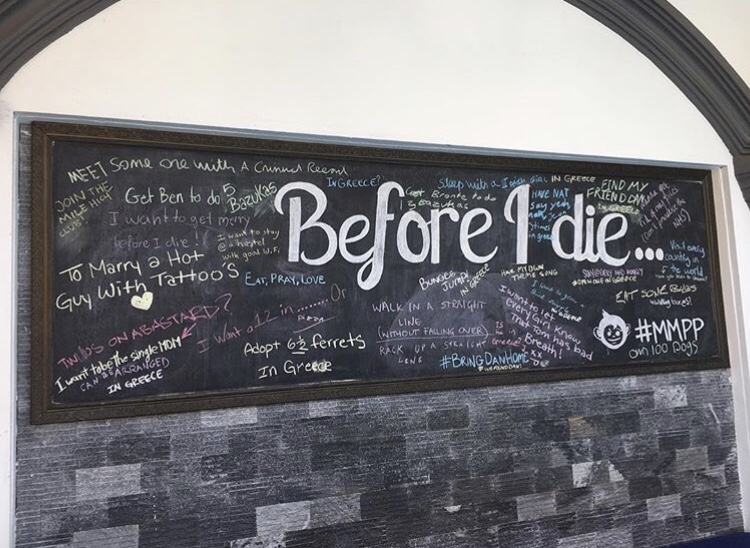 MEET Some one with A Criminal Record
JOIN THE
MILE HIGH
CLUB!
Get Ben to do 5
BAZUKAS
I want to get merry
before I die !
I want to stay
@ a hostel
with good W.F.
To Marry a Hot
Guy With TaTToo'S
EAT, PRAY, LOVE
IN GREECE?
Before I die...
Sleep with a
IN GREECE
FIND MY
FRIEND DAN
IN GREECE
HAVE NAT
say yeah
times
in greece
Visit every
country in
the world
TWINS ON A BASTARD?
I want to be the single MOM
CAN BE ARRANGED
IN GREECE
I want a 12 in ........
Adopt 6½ ferrets
In Greece
BUNGEE
JUMP
IN GREECE
HAVE MY OWN
THEME SONG
WALK IN A STRAIGHT
LINE
(WITHOUT FALLING OVER)
RACK UP A STRAIGHT
LINE
#BRINGDANHOME
I want to let
Every Girl Know
That Tom has bad
Breath!
xx
EAT SOME BUGS
#MMPP
own 100 Dogs